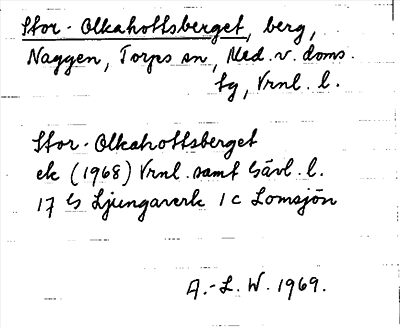 Stor-Olkahottsberget, berg,
Naggen, Torps sn, Med. v. doms.
sg, Vrnl. l.
Stor-Olkahottsberget
ek (1968) Vrnl. samt Gävl. l.
17 G Ljungaverk 1 c Lomsjön
A.-L. W. 1969.